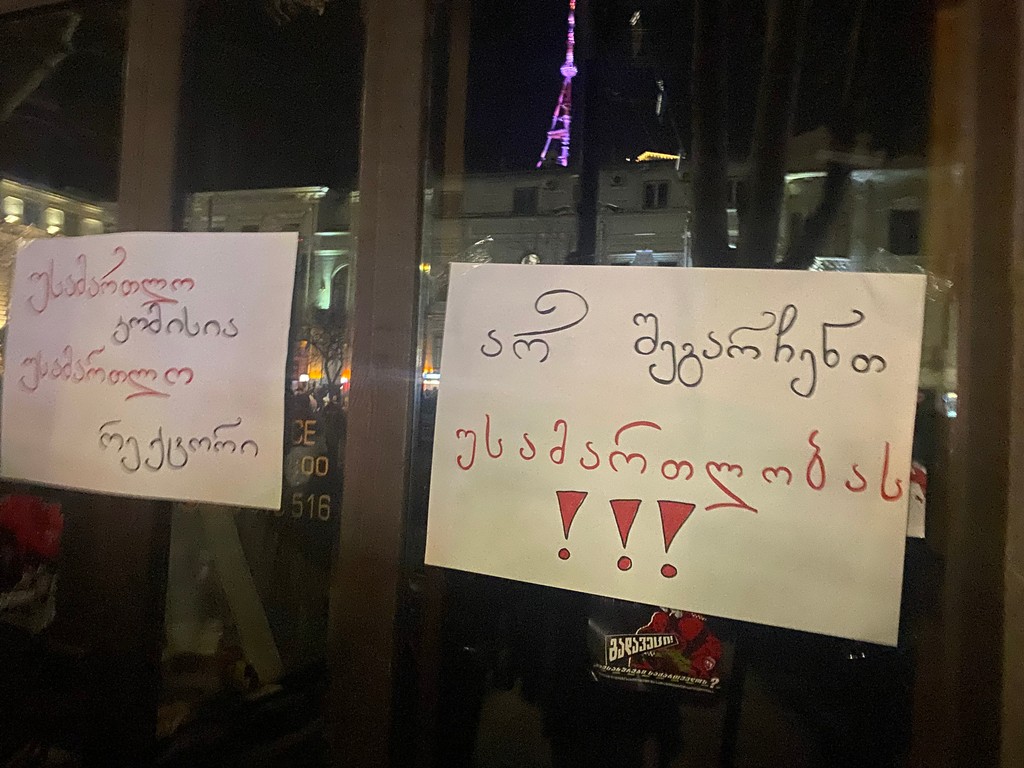 უსამართლო
კომისია
უსამართლო
რექტორი
არ შეგარჩენთ
უსამართლობას
!!!
CE
:00
516
გადავეცი!
სამართველოს?